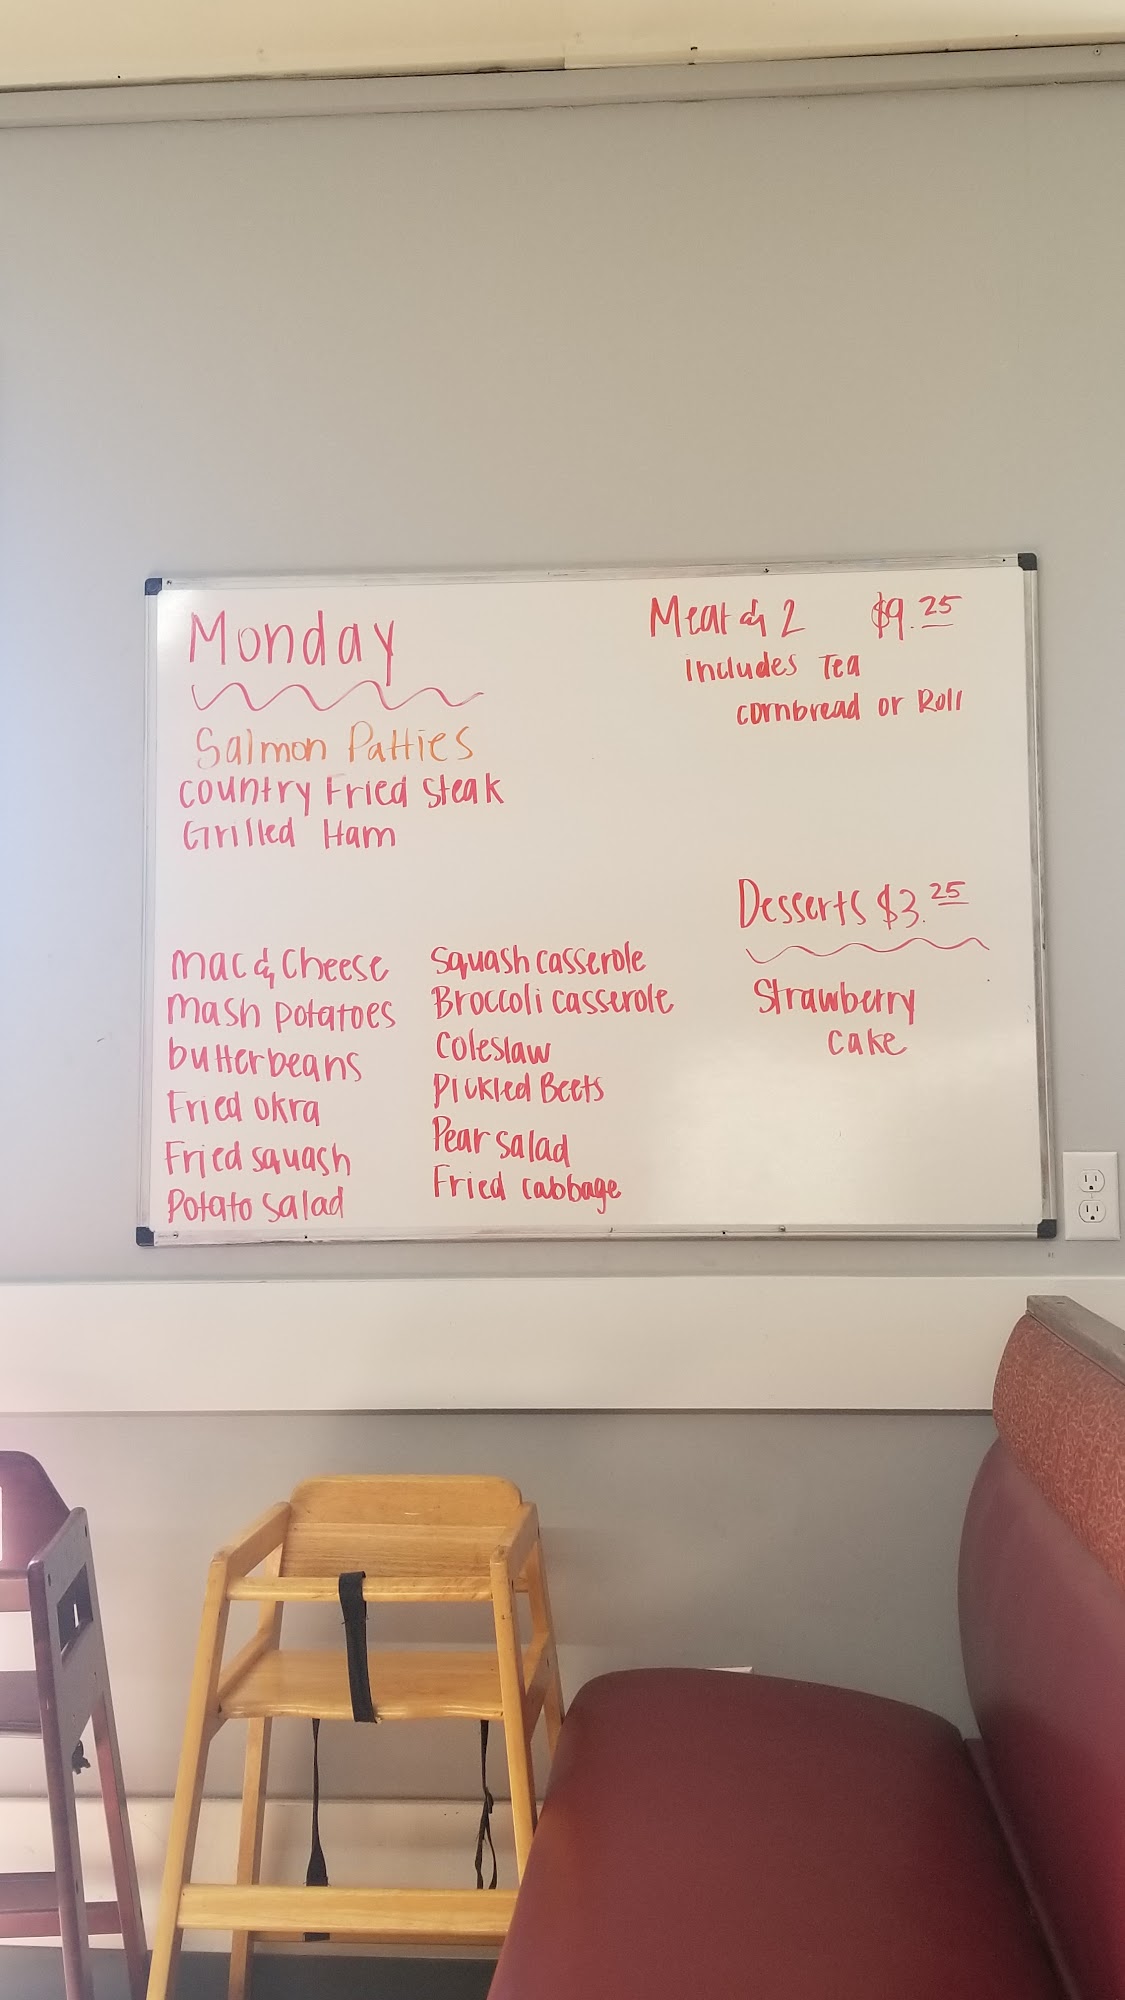 Monday
Salmon Patties
Country Fried Steak
Grilled Ham
Meat & 2 $9.25
includes Tea
cornbread or Roll
Mac & Cheese
Mash potatoes
butterbeans
Fried okra
Fried squash
Potato salad
Squash casserole
Broccoli casserole
Coleslaw
Pickled Beets
Pear salad
Fried cabbage
Desserts $3.25
Strawberry
Cake